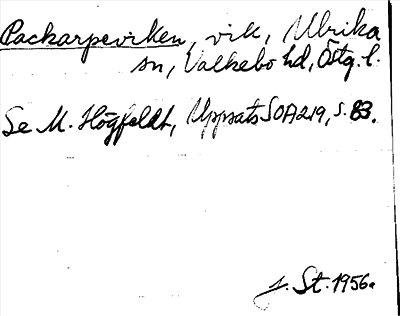 Packarpeviken, vik, Ulrika
sn, Valkebo hd, Östg. l.
Se M. Högfeldt, Uppsats SOA 219, s. 83.
J. St. 1956.